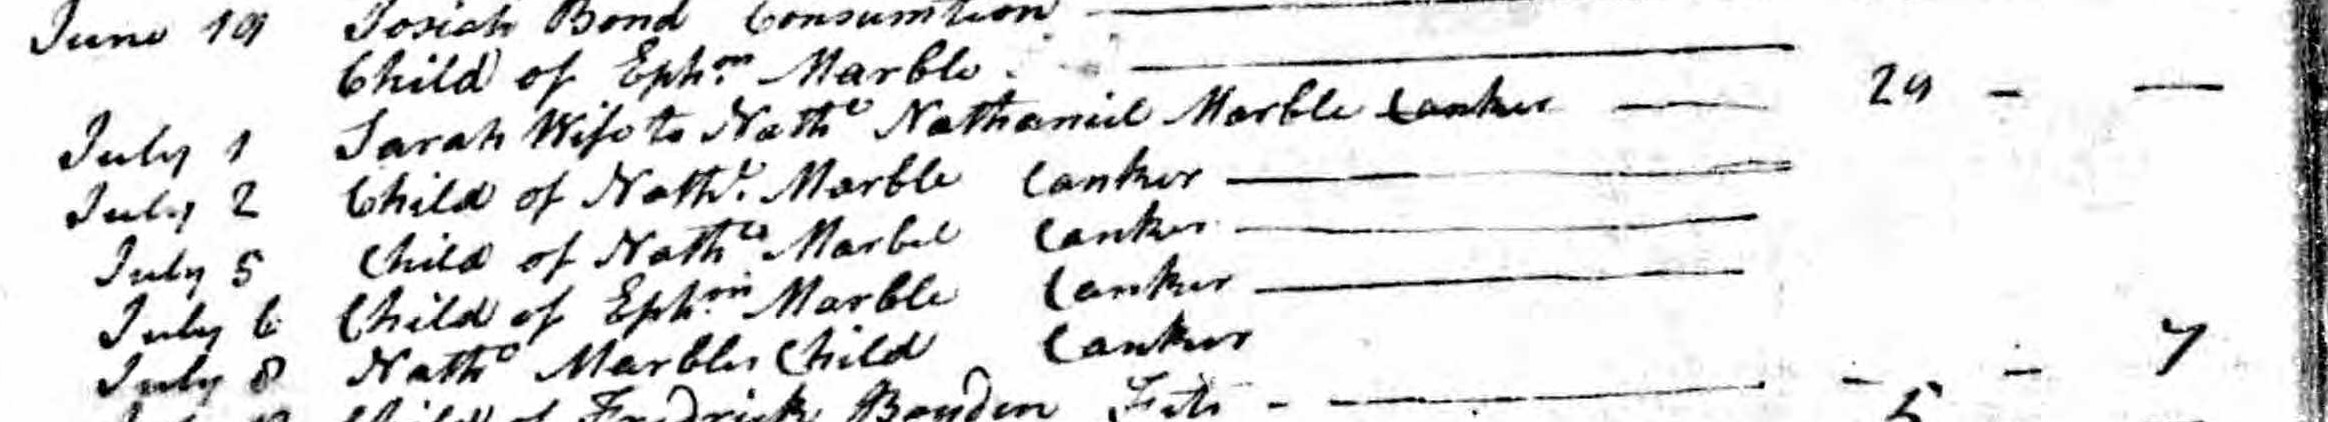 June 19 Josiah Bond Consumtion
Child of Ephm Marble
July 1 Sarah Wife to Nathe Nathaniel Marble Canker 29
July 2 Child of Nathl Marble Canker
July 5 Child of Nathll Marbel Canker
July 6 Child of Ephm Marble Canker
July 8 Nathe Marbles Child Canker 7
Child of Fredrick Boyden Fits 5